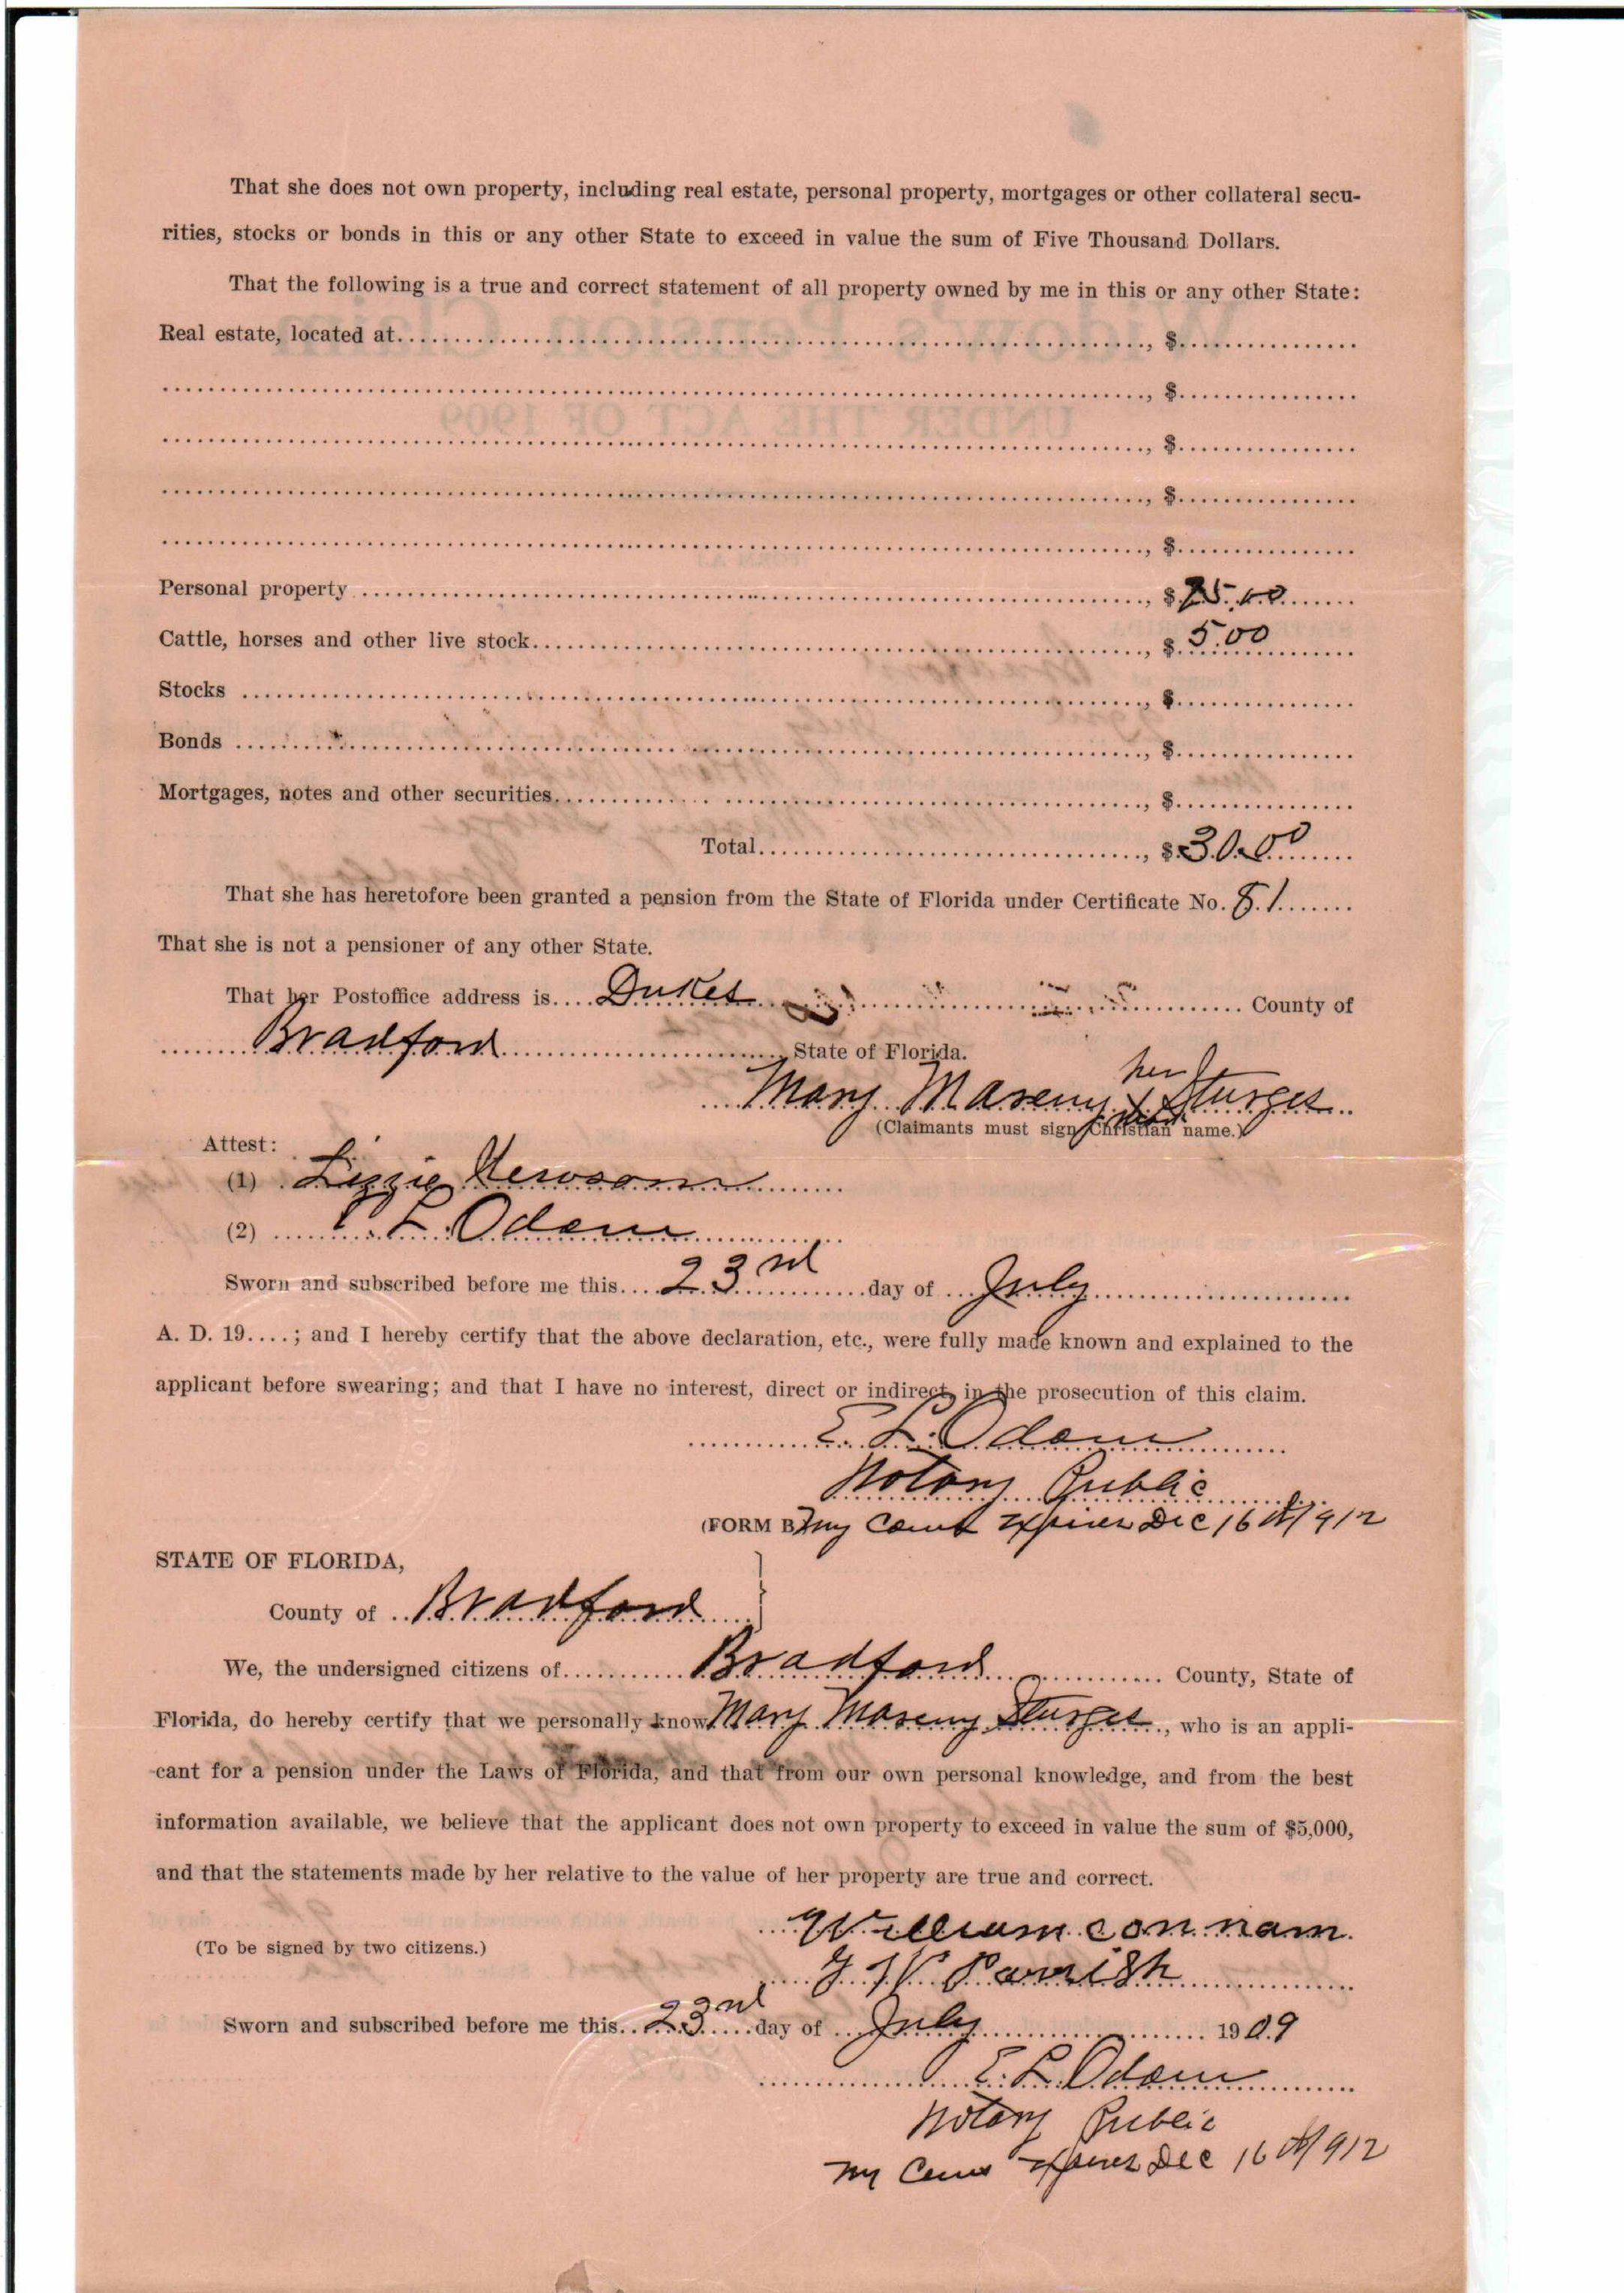 That she does not own property, including real estate, personal property, mortgages or other collateral secu-
rities, stocks or bonds in this or any other State to exceed in value the sum of Five Thousand Dollars.
That the following is a true and correct statement of all property owned by me in this or any other State:
Real estate, located at, $
, $
, $
, $
, $
Personal property, $25.00
Cattle, horses and other live stock, $5.00
Stocks, $
Bonds, $
Mortgages, notes and other securities, $
Total, $30.00
That she has heretofore been granted a pension from the State of Florida under Certificate No. 81
That she is not a pensioner of any other State.
That her Postoffice address is Dukes County of
Bradford State of Florida.
her
Mary Maseny X Sturges
mark
(Claimants must sign Christian name.)
Attest:
(1) Lizzie Newsom
(2) E. L. Odom
Sworn and subscribed before me this 23rd day of July
A. D. 19....; and I hereby certify that the above declaration, etc., were fully made known and explained to the
applicant before swearing; and that I have no interest, direct or indirect, in the prosecution of this claim.
E. L. Odom
Notary Public
(FORM B My Comt Expires Dec 16th 1912
STATE OF FLORIDA,
County of Bradford
We, the undersigned citizens of Bradford County, State of
Florida, do hereby certify that we personally know Mary Maseny Sturges, who is an appli-
cant for a pension under the Laws of Florida, and that from our own personal knowledge, and from the best
information available, we believe that the applicant does not own property to exceed in value the sum of $5,000,
and that the statements made by her relative to the value of her property are true and correct.
William con nam
(To be signed by two citizens.)
Parrish
Sworn and subscribed before me this 23rd day of July 1909
E. L. Odom
Notary Public
My Expires Dec 16th 1912